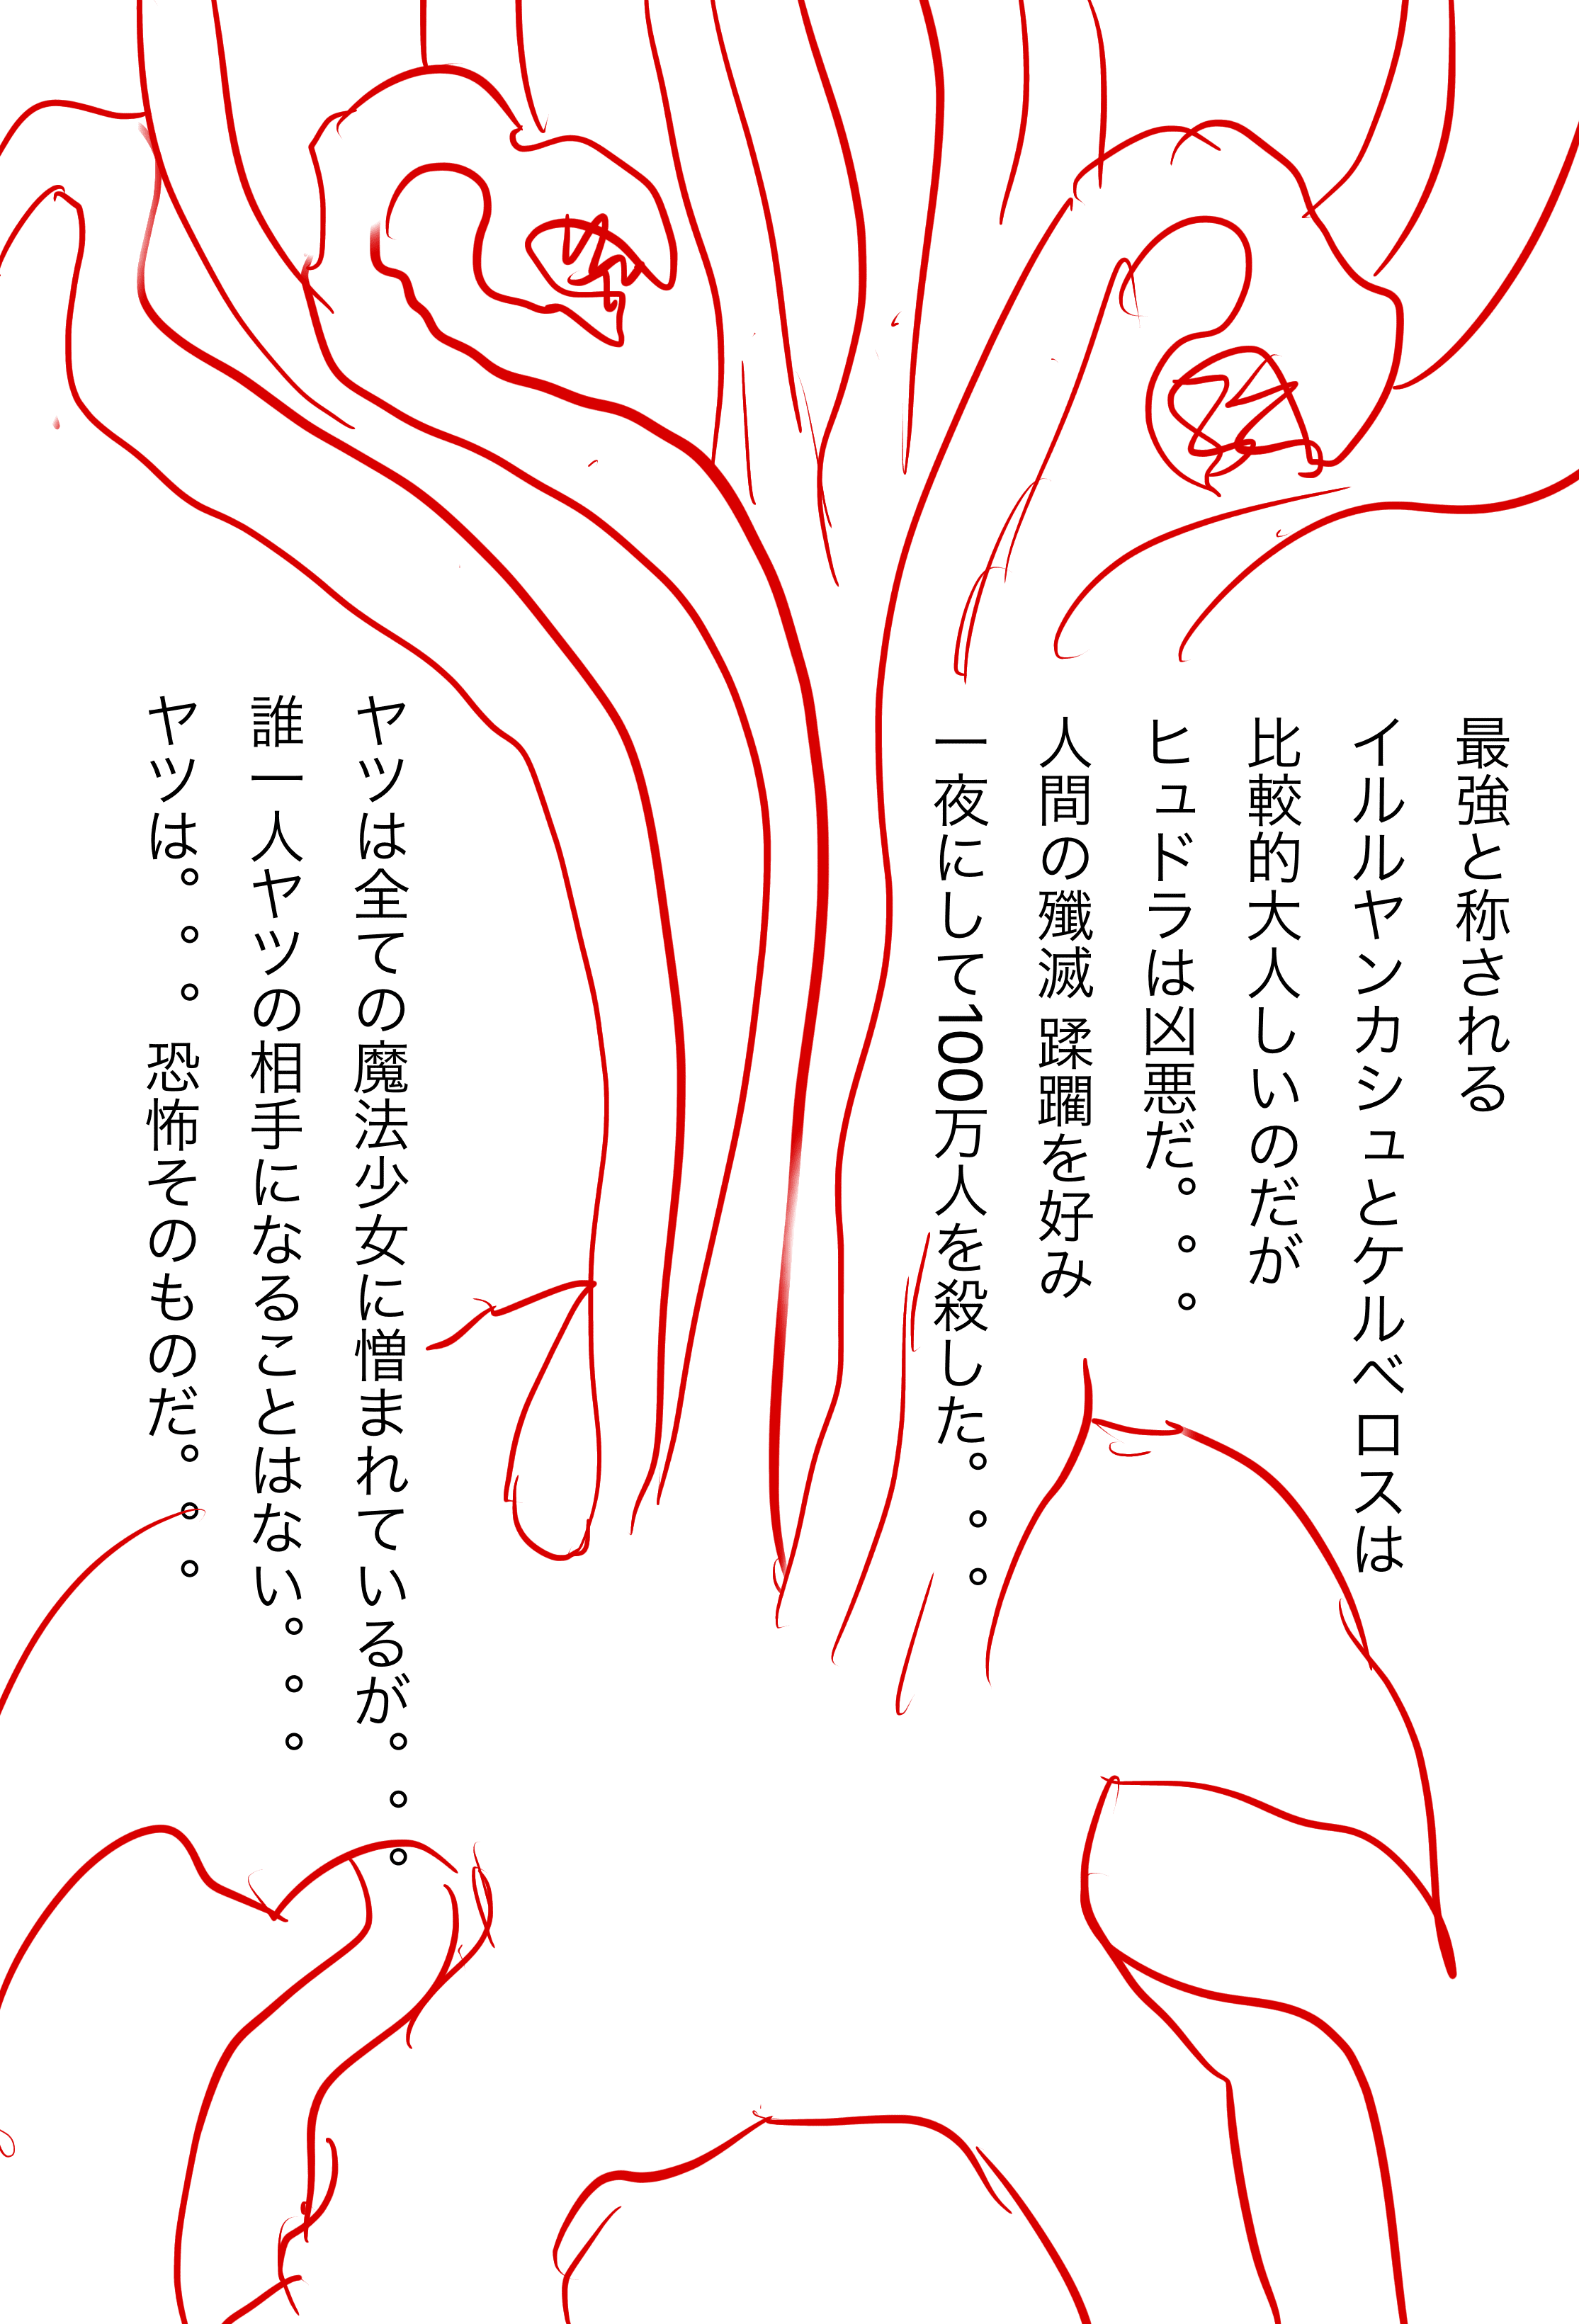 最強と称される
イルルヤンカシュとケルベロスは
比較的大人しいのだが
ヒュドラは凶悪だ。。。
人間の殲滅 蹂躙を好み
一夜にして100万人を殺した。。。
ヤツは全ての魔法少女に憎まれているが。。。
誰一人ヤツの相手になることはない。。。
ヤツは。。。恐怖そのものだ。。。